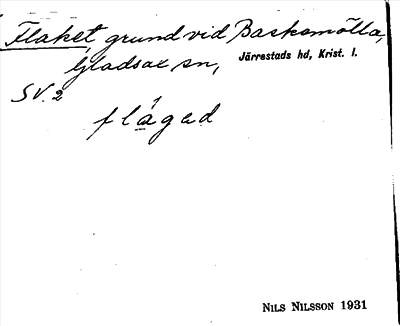 Flaket, grund vid Baskemölla,
Gladsax sn, Järrestads hd, Krist. l.
SV. 2
flágad
NILS NILSSON 1931